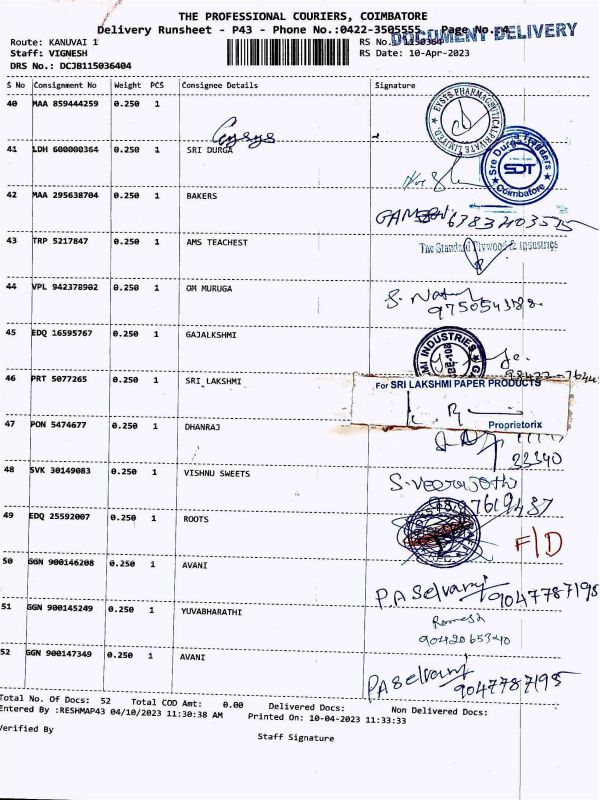 THE PROFESSIONAL COURIERS, COIMBATORE
Delivery Runsheet - P43 - Phone No.:0422-3505555 Page No.:4
DOCUMENT DELIVERY
Route: KANUVAI 1 RS No.: 1150364
Staff: VIGNESH RS Date: 10-Apr-2023
DRS No.: DCJB115036404
S No Consignment No Weight PCS Consignee Details Signature
40 MAA 859444259 0.250 1
EYSYS PHARMACEUTICAL PRIVATE LIMITED
Eysys
41 LDH 600000364 0.250 1 SRI DURGA
Sre Durga Traders
SDT
Coimbatore
42 MAA 295638704 0.250 1 BAKERS
6383403525
43 TRP 5217847 0.250 1 AMS TEACHEST
The Standard Plywood & Industries
44 VPL 942378902 0.250 1 OM MURUGA
45 EDQ 16595767 0.250 1 GAJALKSHMI
MI INDUSTRIES
46 PRT 5077265 1 SRI LAKSHMI
0.250
For SRI LAKSHMI PAPER PRODUCTS
Proprietorix
47 PON 5474677 0.250 1 DHANRAJ
48 SVK 30149083 0.250 1 VISHNU SWEETS
49 EDQ 25592007 0.250 1 ROOTS
F/D
50 GGN 900146208 0.250 1 AVANI
P.A Selvaraj 9047787195
51 GGN 900145249 0.250 1 YUVABHARATHI
Ramesh
9042065340
52 GGN 900147349 0.250 1 AVANI
P.A Selvaraj
9047787195
Total No. Of Docs: 52 Total COD Amt: 0.00 Delivered Docs: Non Delivered Docs:
Entered By :RESHMAP43 04/10/2023 11:30:38 AM Printed On: 10-04-2023 11:33:33
Verified By Staff Signature